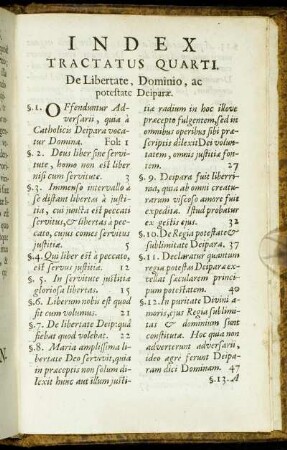 INDEX
TRACTATUS QUARTI.
De Libertate, Dominio, ac
potestate Deiparæ.
§.1. OFfenduntur Ad-
versarii, quia à
Catholicis Deipara voca-
tur Domina. Fol: 1
§.2. Deus liber sine servi-
tute, homo non est liber
nisi cum servitute. 3
§.3. Immenso intervallo à
se distant libertas à justi-
tia, cui juncta est peccati
servitus, & libertas à pec-
cato, cujus comes servitus
justitiæ. 5
§.4. Qui liber est à peccato,
est servus justitiæ. 12
§. 5. In servitute justitiæ
gloriosa libertas. 15
§.6. Liberum nobis est quod
sit cum volumus. 21
§.7. De libertate Deip: quâ
fiebat quod volebat. 22
§.8. Maria amplissima li-
bertate Deo servivit, quia
in præceptis non solum di-
lexit hunc aut illum justi-
tiæ radium in hoc illove
præcepto fulgentem, sed in
omnibus operibus sibi præ-
scriptis dilexit Dei volun-
tatem, omnis justitiæ fon-
tem. 27
§. 9. Deipara fuit liberri-
ma, quia ab omni creatu-
rarum viscoso amore fuit
expedita. Istud probatur
ex gestis ejus. 32
§.10. De Regia potestate &
sublimitate Deiparæ. 37
§.11. Declaratur quantum
regia potestas Deiparæ ex-
cellat sæcularem princi-
pum potestatem. 40
§.12. In puritate Divini a-
moris, ejus Regia sublimi-
tas & dominium sunt
constituta. Hoc quia non
adverterunt adversarii,
ideo ægre ferunt Deipa-
ram dici Dominam. 47
§.13. A